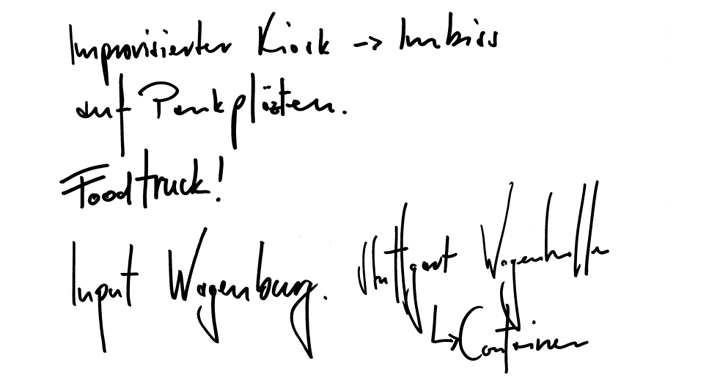 Improvisierter Kiosk -> Imbiss
auf Parkplätzen.
Foodtruck!
Input Wagenburg.
Stuttgart Wagenhallen
↳ Container